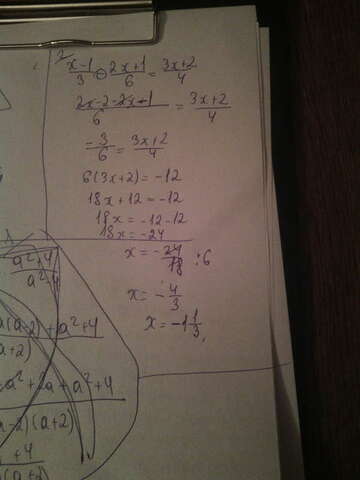 2.
x-1/3 - 2x+1/6 = 3x+2/4
2x-2-2x+1/6 = 3x+2/4
-3/6 = 3x+2/4
6(3x+2) = -12
18x+12 = -12
18x = -12-12
18x = -24
x = -24/18 :6
x = -4/3
x = -1 1/3.
a²+4
a²-4
a(a-2)+a²+4
a+2)
a²+2a+a²+4
a-2)(a+2)
+4
(a+2)